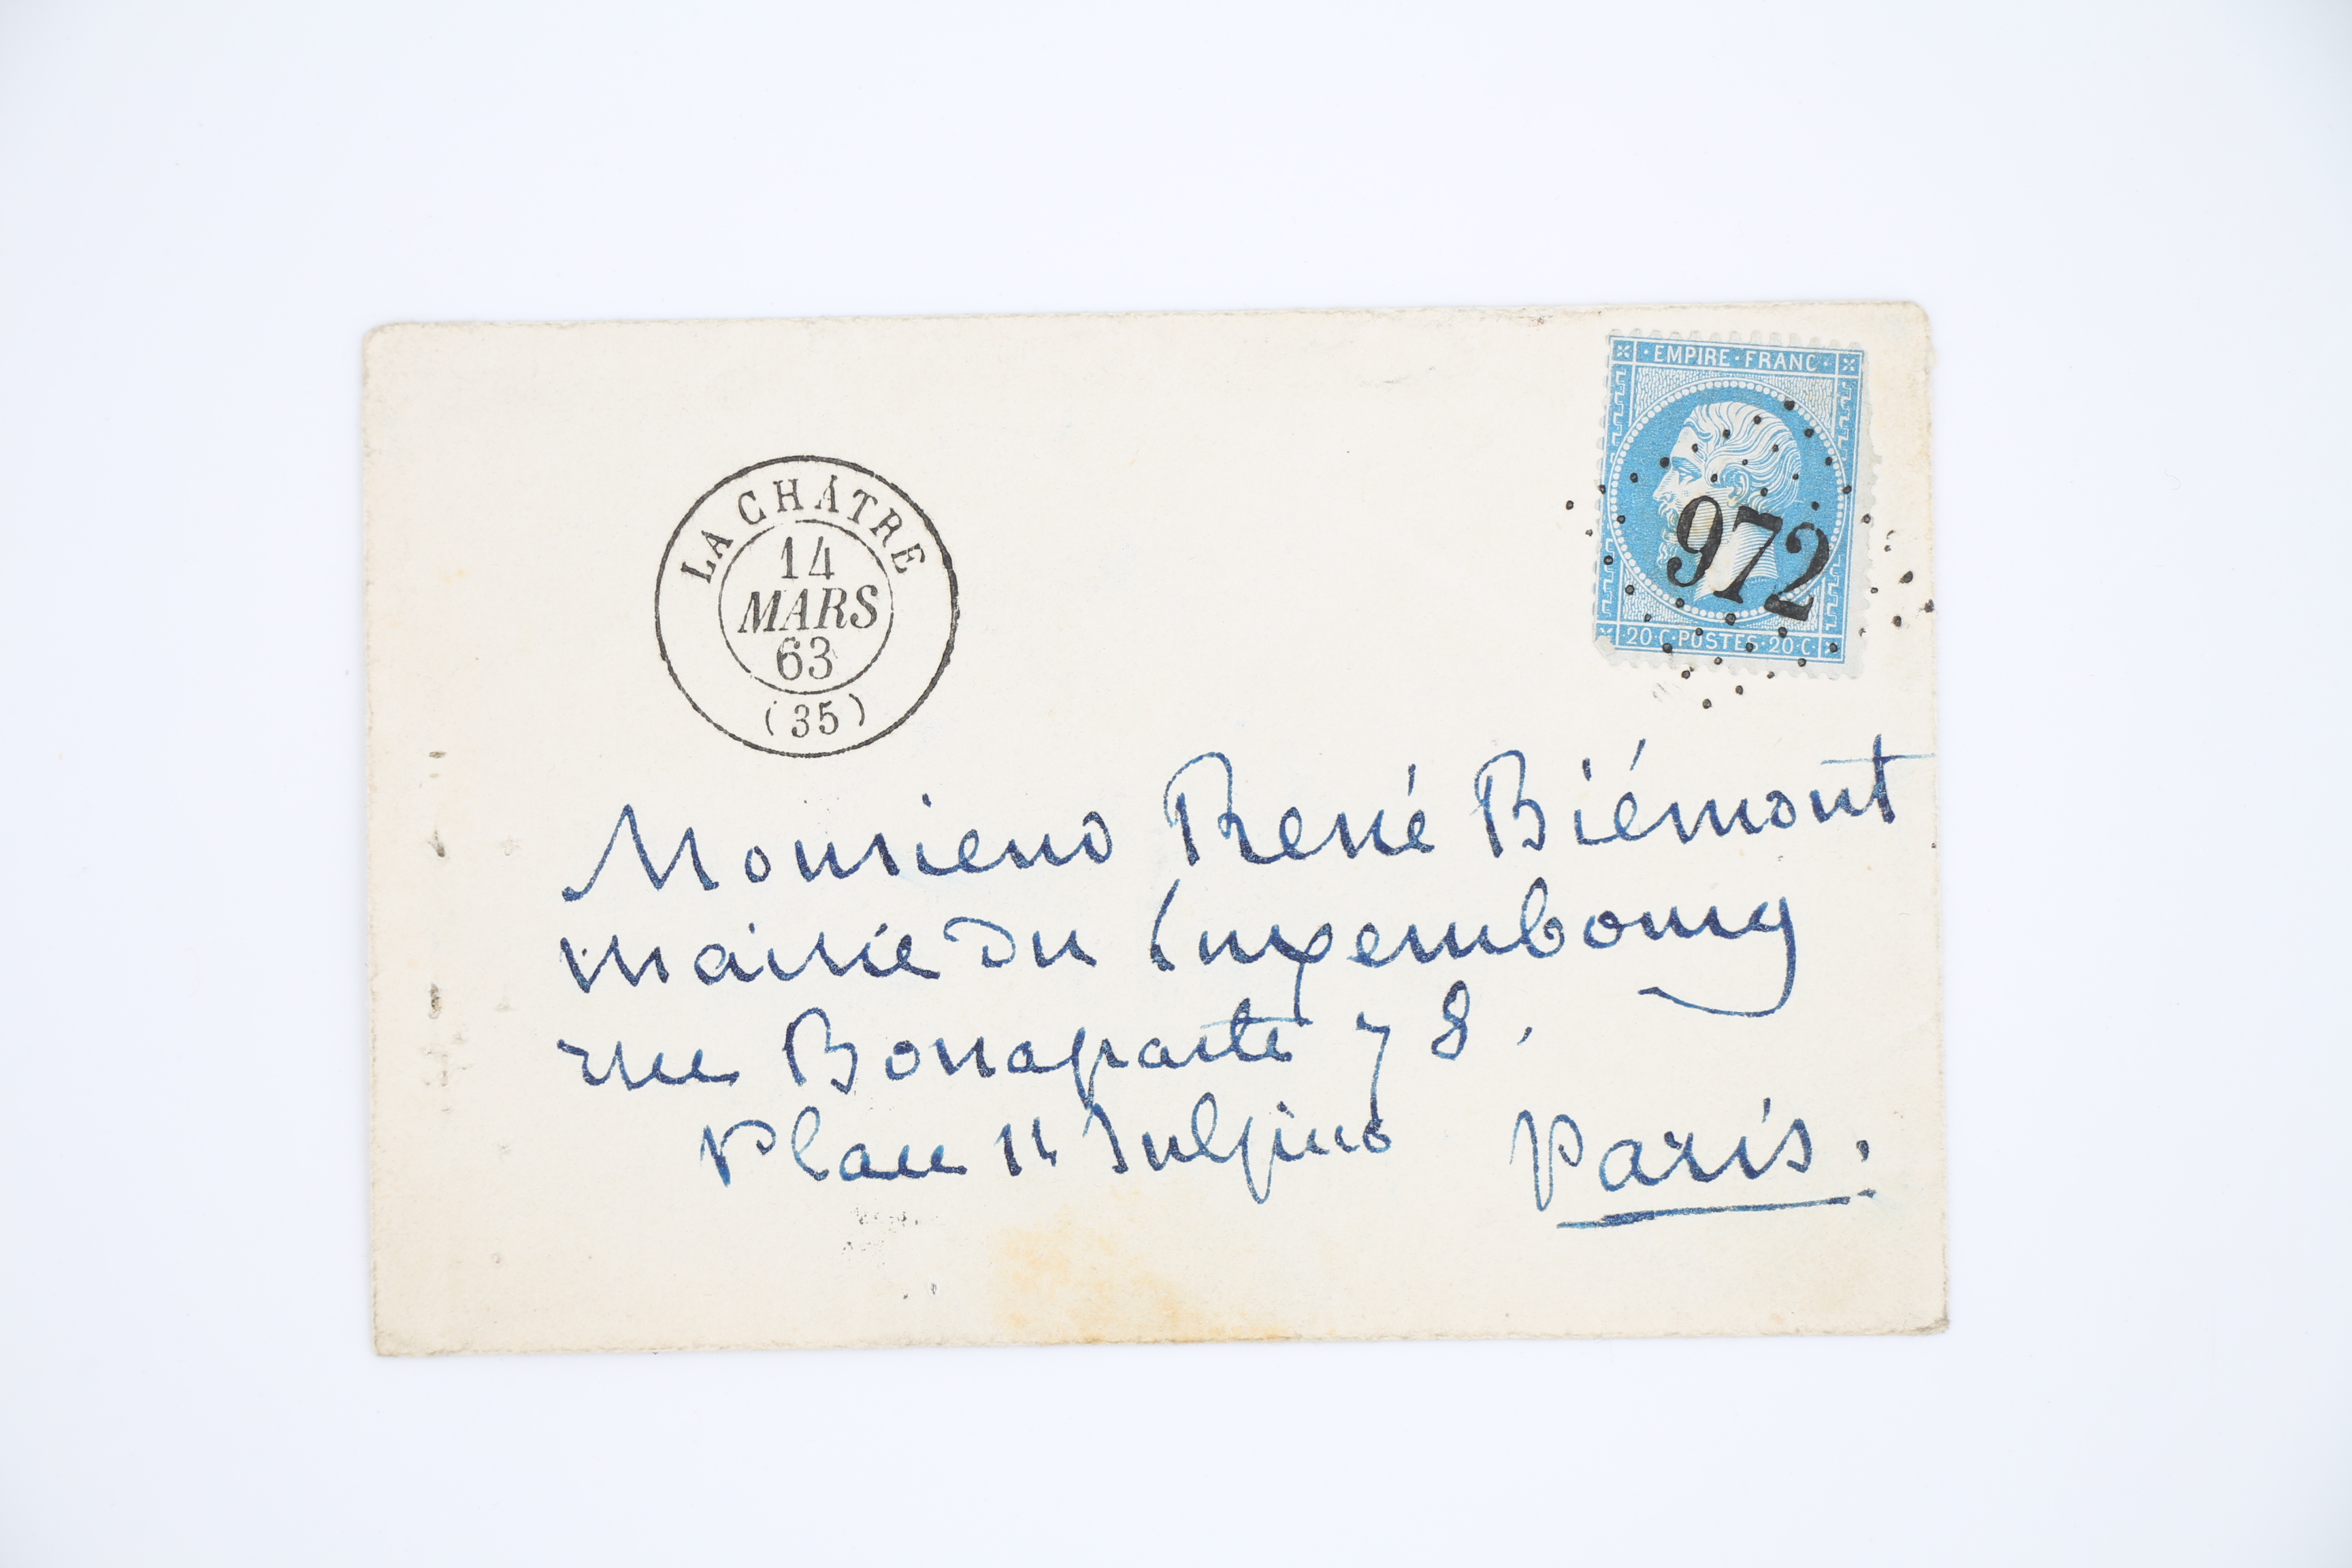 LA CHÂTRE
14
MARS
63
(35)
EMPIRE FRANC
972
20 C POSTES 20 C
Monsieur René Biémont
mairie du Luxembourg
rue Bonaparte 78.
Place St Sulpice Paris.